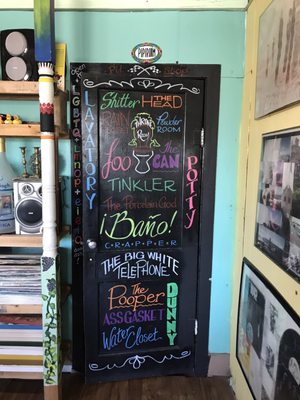 PIPIRUM
LAVATORY
Shitter
THE HEAD
Powder
ROOM
Loo
the
CAN
TINKLER
POTTY
The Porcelain God
¡Baño!
CRAPPER
THE BIG WHITE
TELEPHONE
The
Pooper
ASS GASKET
DUNNY
Water Closet